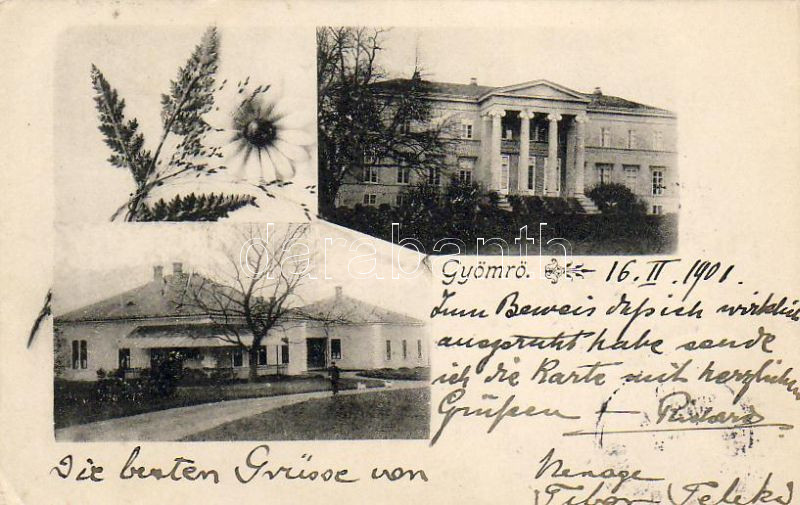 darabanth.com
Gyömrő. 16. II. 1901.
Zum Beweis daß ich wirklich
ausgeruht habe sende
ich die Karte mit herzlichen
Grüßen
Die besten Grüsse von
Menage
Tibor Teleki